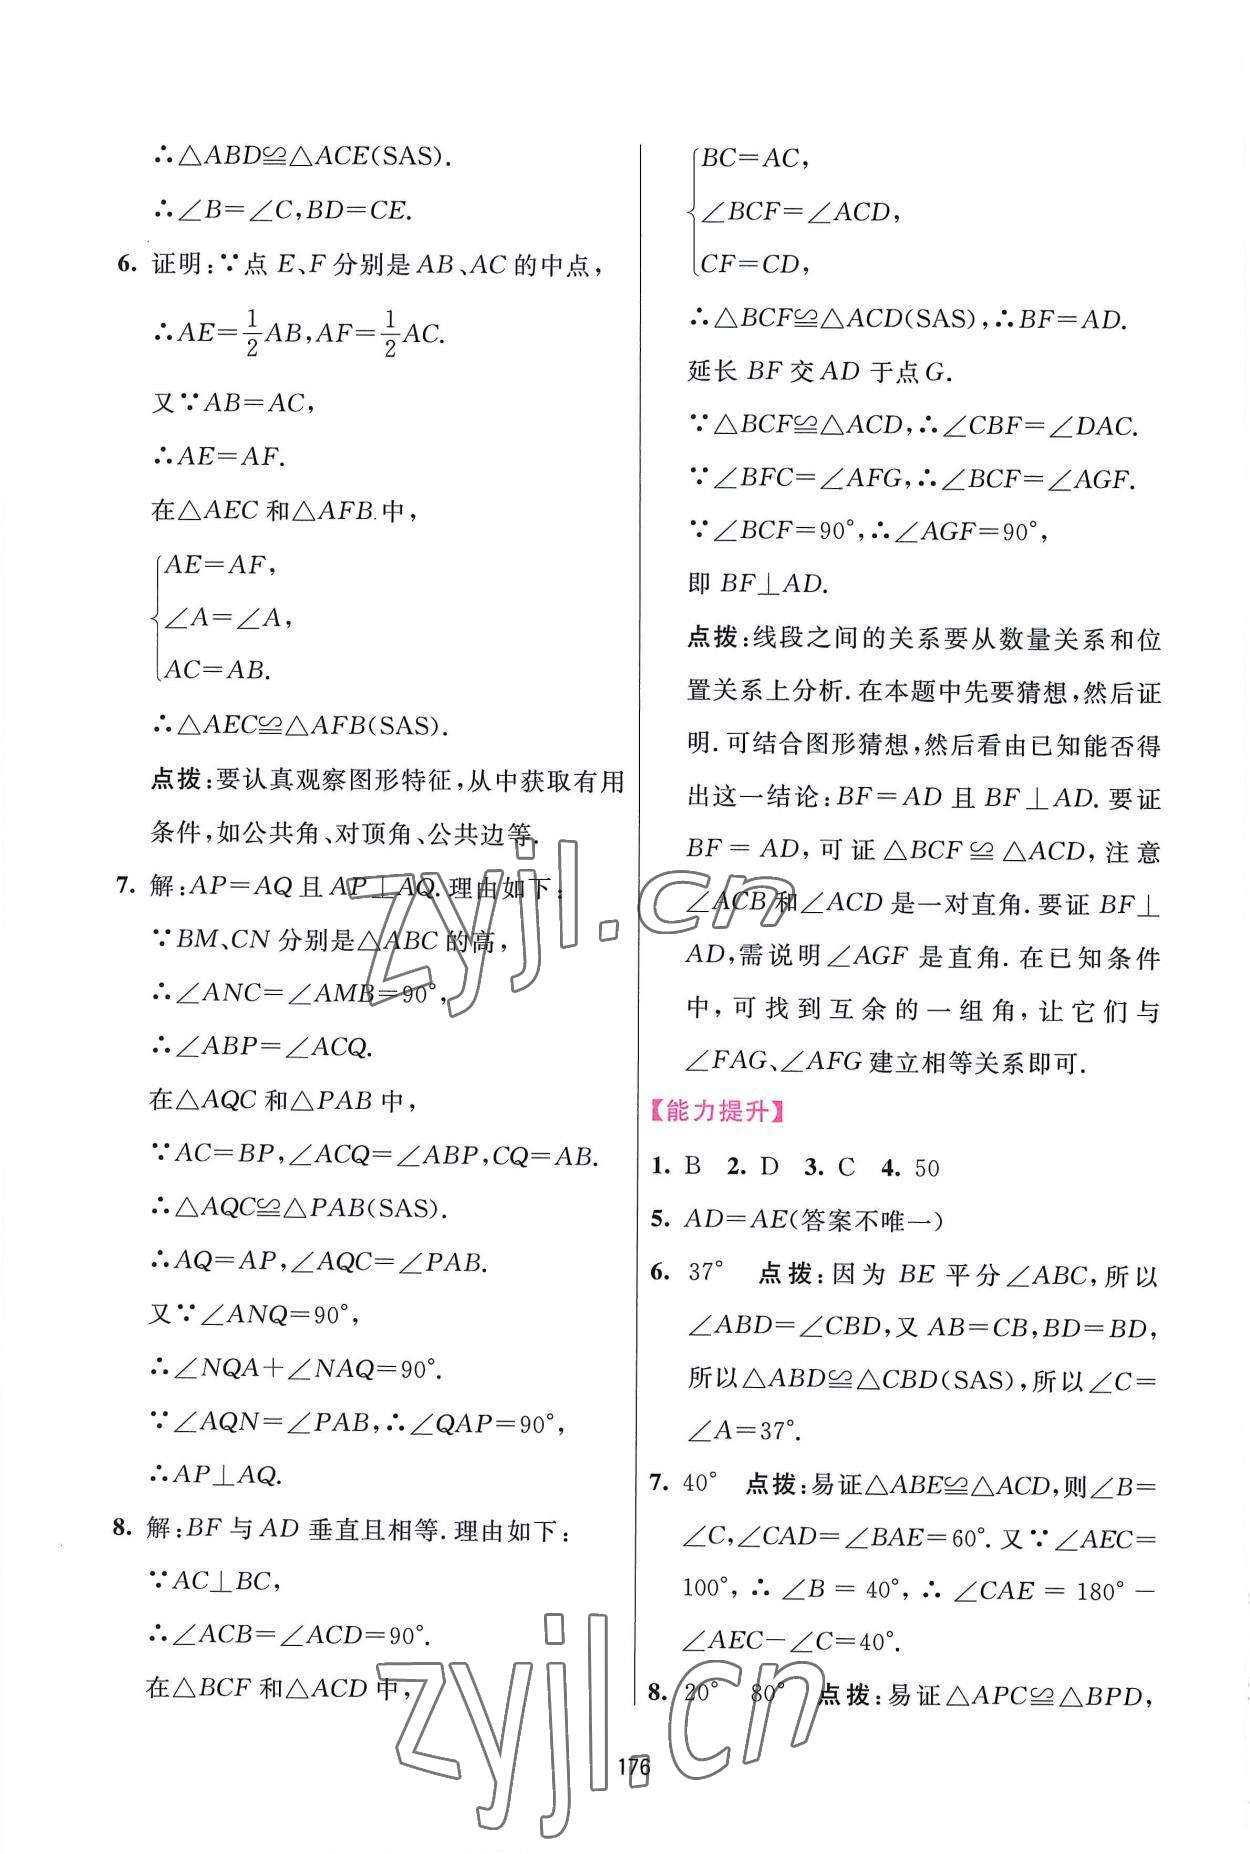 ∴△ABD≌△ACE(SAS).
∴∠B=∠C,BD=CE.
6. 证明:∵点 E、F 分别是 AB、AC 的中点,
∴AE=1/2AB,AF=1/2AC.
又∵AB=AC,
∴AE=AF.
在△AEC 和△AFB 中,
AE=AF,
∠A=∠A,
AC=AB.
∴△AEC≌△AFB(SAS).
点拨:要认真观察图形特征,从中获取有用
条件,如公共角、对顶角、公共边等.
7. 解:AP=AQ 且 AP⊥AQ.理由如下:
∵BM、CN 分别是△ABC 的高,
∴∠ANC=∠AMB=90°,
∴∠ABP=∠ACQ.
在△AQC 和△PAB 中,
∵AC=BP,∠ACQ=∠ABP,CQ=AB.
∴△AQC≌△PAB(SAS).
∴AQ=AP,∠AQC=∠PAB.
又∵∠ANQ=90°,
∴∠NQA+∠NAQ=90°.
∵∠AQN=∠PAB,∴∠QAP=90°,
∴AP⊥AQ.
8. 解:BF 与 AD 垂直且相等.理由如下:
∵AC⊥BC,
∴∠ACB=∠ACD=90°.
在△BCF 和△ACD 中,
BC=AC,
∠BCF=∠ACD,
CF=CD,
∴△BCF≌△ACD(SAS),∴BF=AD.
延长 BF 交 AD 于点 G.
∵△BCF≌△ACD,∴∠CBF=∠DAC.
∵∠BFC=∠AFG,∴∠BCF=∠AGF.
∵∠BCF=90°,∴∠AGF=90°,
即 BF⊥AD.
点拨:线段之间的关系要从数量关系和位
置关系上分析.在本题中先要猜想,然后证
明.可结合图形猜想,然后看由已知能否得
出这一结论:BF=AD 且 BF⊥AD.要证
BF=AD,可证△BCF≌△ACD,注意
∠ACB 和∠ACD 是一对直角.要证 BF⊥
AD,需说明∠AGF 是直角.在已知条件
中,可找到互余的一组角,让它们与
∠FAG、∠AFG 建立相等关系即可.
【能力提升】
1. B 2. D 3. C 4. 50
5. AD=AE(答案不唯一)
6. 37° 点拨:因为 BE 平分∠ABC,所以
∠ABD=∠CBD,又 AB=CB,BD=BD,
所以△ABD≌△CBD(SAS),所以∠C=
∠A=37°.
7. 40° 点拨:易证△ABE≌△ACD,则∠B=
∠C,∠CAD=∠BAE=60°.又∵∠AEC=
100°,∴∠B=40°,∴∠CAE=180°-
∠AEC-∠C=40°.
8. 20° 80° 点拨:易证△APC≌△BPD,
176
zyjl.cn
zyjl.cn